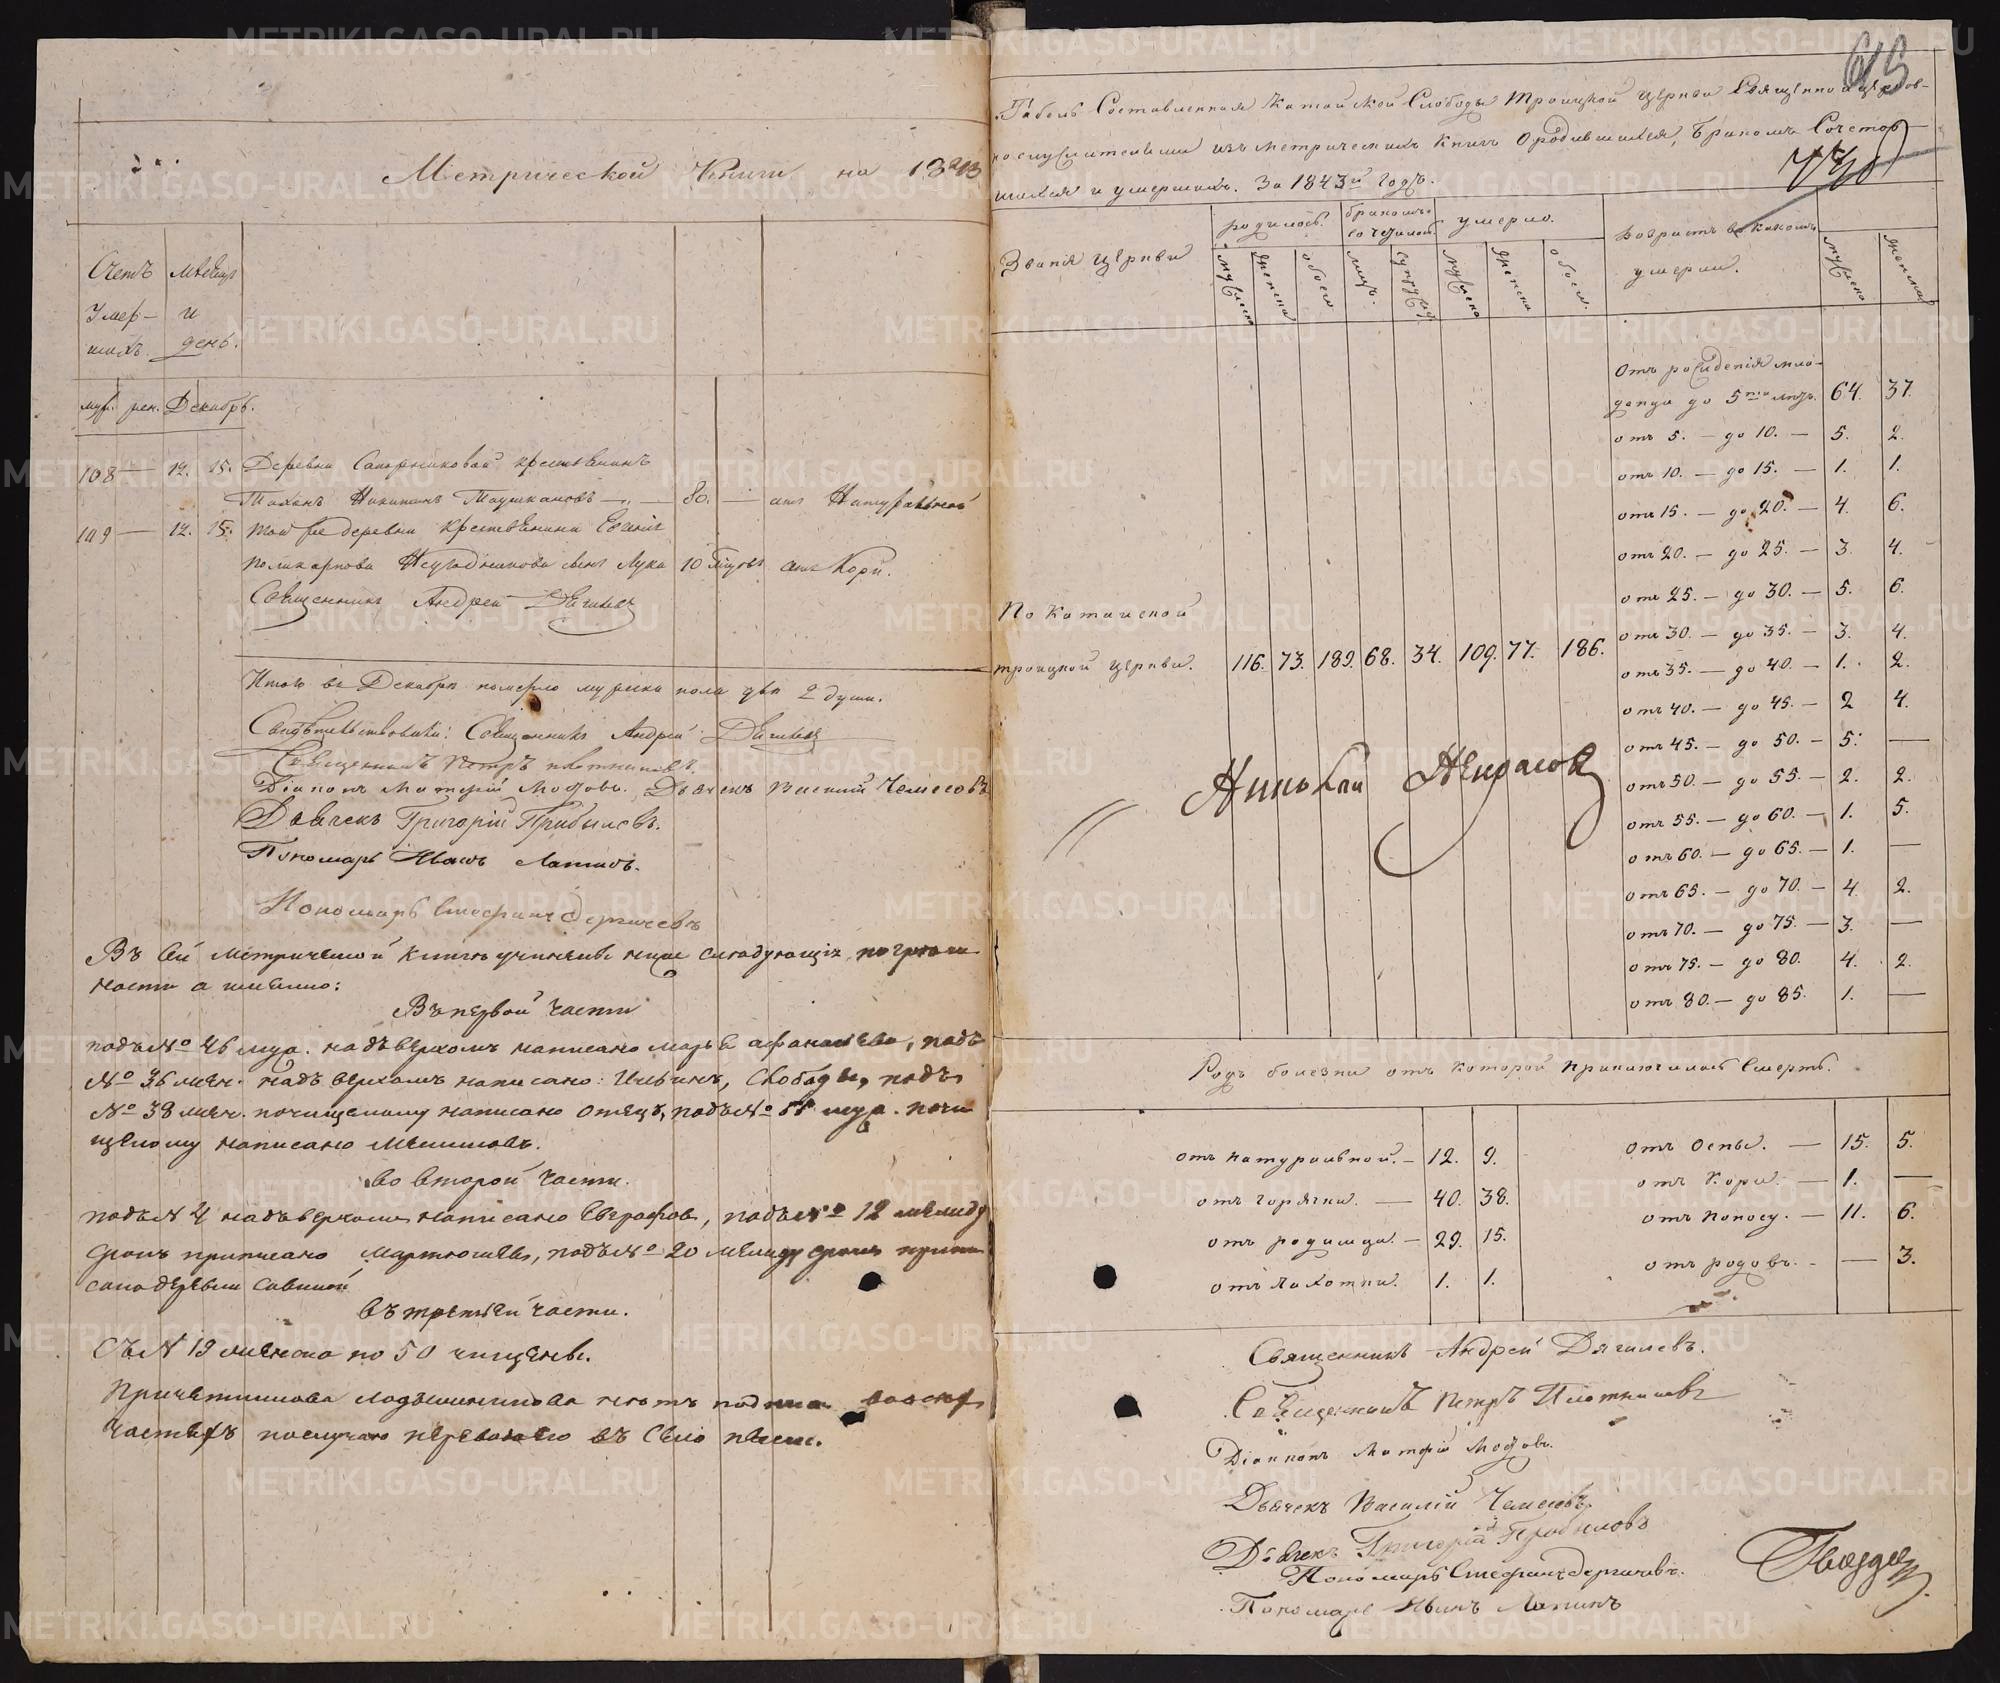 Метрической Книги на 1843
Счетъ
Умер-
шихъ.
мѣсяцъ
и
день.
муж. жен. Декабрь.
108 — 12. 15. Деревни крестьянинъ
Никитинъ — 80. — отъ Натуральной
109 — 12. 15. той же деревни крестьянина
Поликарпова сынъ Лука 10 отъ Кори.
Священникъ Андрей Дягилевъ
Итого въ Декабрѣ померло мужеска пола двѣ 2 души.
Свидѣтельствовали: Священникъ Андрей Дягилевъ
Священникъ Петръ Плотниковъ.
Діаконъ Матфій Дьячекъ Василій
Дьячекъ Григорій Прибылевъ.
Пономарь Иванъ Лапинъ.
Пономарь Стефанъ Дергачевъ
Въ сей метрической книгѣ учинены ниже слѣдующія погрѣш
ности а именно:
Въ первой части
подъ № 46 муж. надъ верхомъ написано Марѳа Афанасьева, подъ
№ 36 жен. надъ верхомъ написано: Ильинъ, Слободы, подъ
№ 38 жен. почищеному написано отецъ, подъ № 55 муж. почи
щеному написано
во второй части.
подъ № 4 надъ верхомъ написано Евграфов, подъ № 12 между
строкъ приписано, подъ № 20 между строкъ припи
сано деревни Савиной
въ третьей части.
Съ № 19 женска по 50 чищены.
Причетникова нѣтъ
частяхъ по случаю въ Село
Табель Составленная Катайской Слободы Троицкой Церкви Священно и церков-
но служителями изъ метрическихъ Книгъ О родившихся, Бракомъ Сочетав-
шихся и умершихъ. За 1843й Годъ.
Званія Церкви
родилось.
бракомъ
сочеталось.
умерло.
Возрастъ въ какомъ
умерли.
мужеска
женска
обоего
лицъ.
супруж.
мужеска
женска
обоего.
мужеска
женска
Отъ рожденія мла-
денца до 5ти лѣтъ. 64. 37.
отъ 5. — до 10. — 5. 2.
отъ 10. — до 15. — 1. 1.
отъ 15. — до 20. — 4. 6.
отъ 20. — до 25. — 3. 4.
отъ 25. — до 30. — 5. 6.
отъ 30. — до 35. — 3. 4.
отъ 35. — до 40. — 1. 2.
отъ 40. — до 45. — 2 4.
отъ 45. — до 50. — 5. —
отъ 50. — до 55. — 2. 2.
отъ 55. — до 60. — 1. 5.
отъ 60. — до 65. — 1. —
отъ 65. — до 70. — 4. 2.
отъ 70. — до 75. — 3. —
отъ 75. — до 80. 4. 2.
отъ 80. — до 85. 1. —
По Катайской
троицкой Церкви. 116. 73. 189. 68. 34. 109. 77. 186.
Николай Некрасов
Родъ болезни отъ Которой приключилась Смерть.
отъ натуральной. — 12. 9.
отъ горячки. — 40. 38.
отъ родимца — 29. 15.
отъ чахотки. 1. 1.
отъ Оспы. — 15. 5.
отъ Кори. — 1. —
отъ поносу. — 11. 6.
отъ родовъ. — 3.
Священникъ Андрей Дягилевъ.
Священникъ Петръ Плотниковъ
Діаконъ Матфій
Дьячекъ Василій
Дьячекъ Григорій Прибылевъ
Пономарь Стефанъ Дергачевъ.
Пономарь Иванъ Лапинъ
METRIKI.GASO-URAL.RU